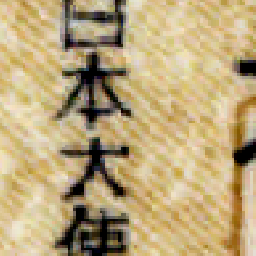 日本大使